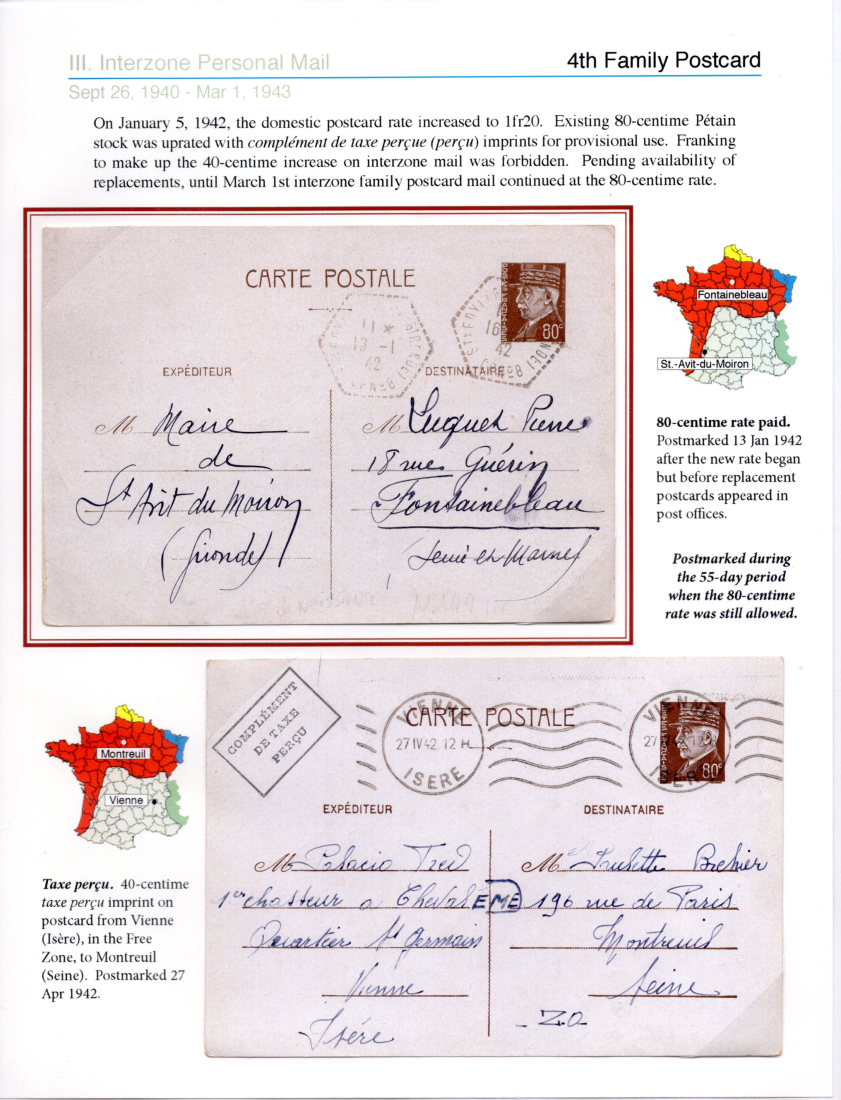 III. Interzone Personal Mail
4th Family Postcard
Sept 26, 1940 - Mar 1, 1943
On January 5, 1942, the domestic postcard rate increased to 1fr20. Existing 80-centime Pétain
stock was uprated with complément de taxe perçue (perçu) imprints for provisional use. Franking
to make up the 40-centime increase on interzone mail was forbidden. Pending availability of
replacements, until March 1st interzone family postcard mail continued at the 80-centime rate.
CARTE POSTALE
80c
11 *
13 -1
42
GIRONDE
16
42
EXPÉDITEUR
DESTINATAIRE
M Maire
de
St Avit du Moiron
(Gironde)
M Luquet Pierre
18 rue Guérin
Fontainebleau
Seine et Marne
Fontainebleau
St.-Avit-du-Moiron
80-centime rate paid.
Postmarked 13 Jan 1942
after the new rate began
but before replacement
postcards appeared in
post offices.
Postmarked during
the 55-day period
when the 80-centime
rate was still allowed.
Montreuil
Vienne
Taxe perçu. 40-centime
taxe perçu imprint on
postcard from Vienne
(Isère), in the Free
Zone, to Montreuil
(Seine). Postmarked 27
Apr 1942.
COMPLÉMENT
DE TAXE
PERÇU
CARTE POSTALE
VIENNE
27 IV 42. 12 H
ISERE
VIENNE
27
ISER
80c
EXPÉDITEUR
DESTINATAIRE
M Palacio
1er chasseur a Cheval
Quartier St Germain
Vienne
Isére
EME
Brehier
196 rue de Paris
Montreuil
Seine
- ZO